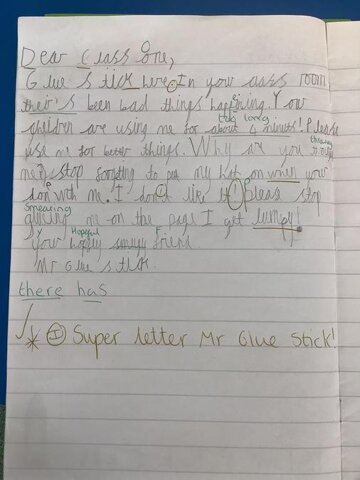 Dear Class One,
Glue stick here. In your class room
their's been bad things happening. Your
too long
children are using me for about 4 minuts! Please
throwing
use me for better things. Why are you
me? stop forgeting to put my hat on when your
don with me. I don't like it! please stop
smearing
glueing me on the page I get lumpy!
Y Hopeful F
your smugy friend
Mr Glue stick.
there has
I Super letter Mr Glue Stick!